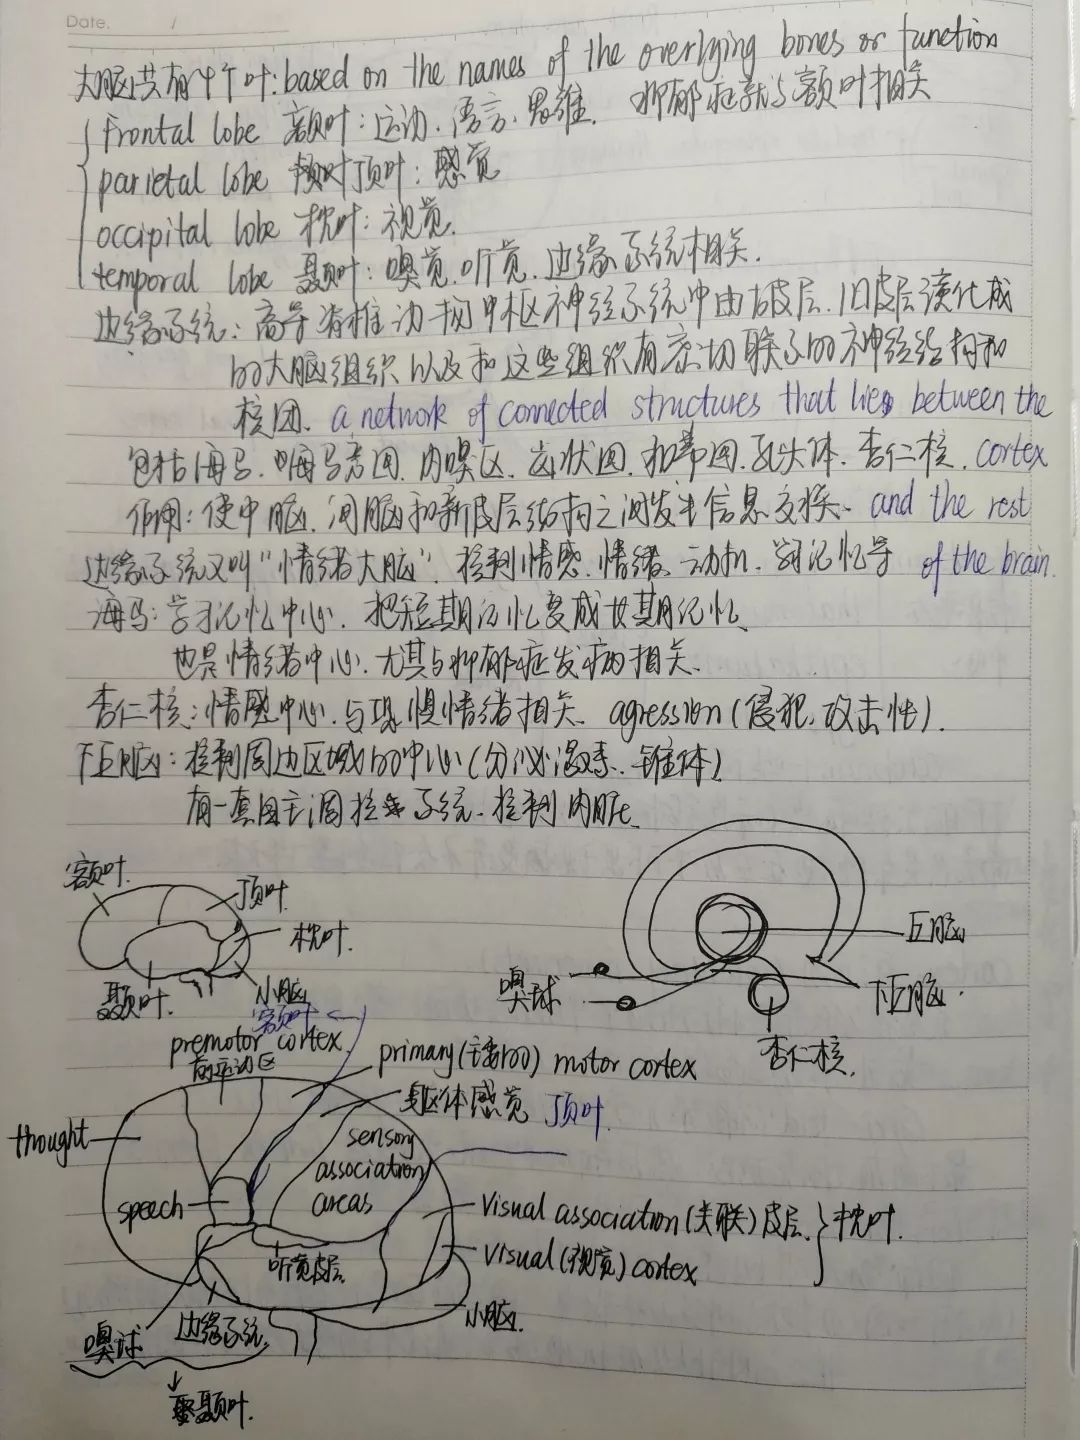 Date.
大脑共有4个叶: based on the names of the overlying bones or function
frontal lobe 额叶: 运动、语言、思维. 抑郁症就与额叶相关
parietal lobe 顶叶: 感觉
occipital lobe 枕叶: 视觉.
temporal lobe 颞叶: 嗅觉.听觉.边缘系统相关.
边缘系统: 高等脊椎动物中枢神经系统中由古皮层.旧皮层演化成
的大脑组织以及和这些组织有密切联系的神经结构和
核团. a network of connected structures that lies between the
包括海马.海马旁回.内嗅区.齿状回.扣带回.乳头体.杏仁核. cortex
作用: 使中脑.间脑和新皮层结构之间发生信息交换. and the rest
边缘系统又叫"情绪大脑". 控制情感.情绪.动机. 学习记忆等 of the brain.
海马: 学习记忆中心. 把短期记忆变成长期记忆.
也是情绪中心.尤其与抑郁症发病相关.
杏仁核: 情感中心.与恐惧情绪相关. agression (侵犯,攻击性).
下丘脑: 控制周边区域的中心(分泌激素.锥体)
有一套自主调控系统.控制内脏.
额叶.
顶叶
枕叶.
颞叶.
小脑
丘脑
嗅球
下丘脑.
杏仁核.
额叶
premotor cortex
前运动区
primary (主要的) motor cortex
躯体感觉 顶叶
thought
sensory
association
areas
speech
visual association (关联) 皮层.
枕叶.
visual (视觉) cortex
听觉皮层
小脑.
嗅球
边缘系统
颞叶.